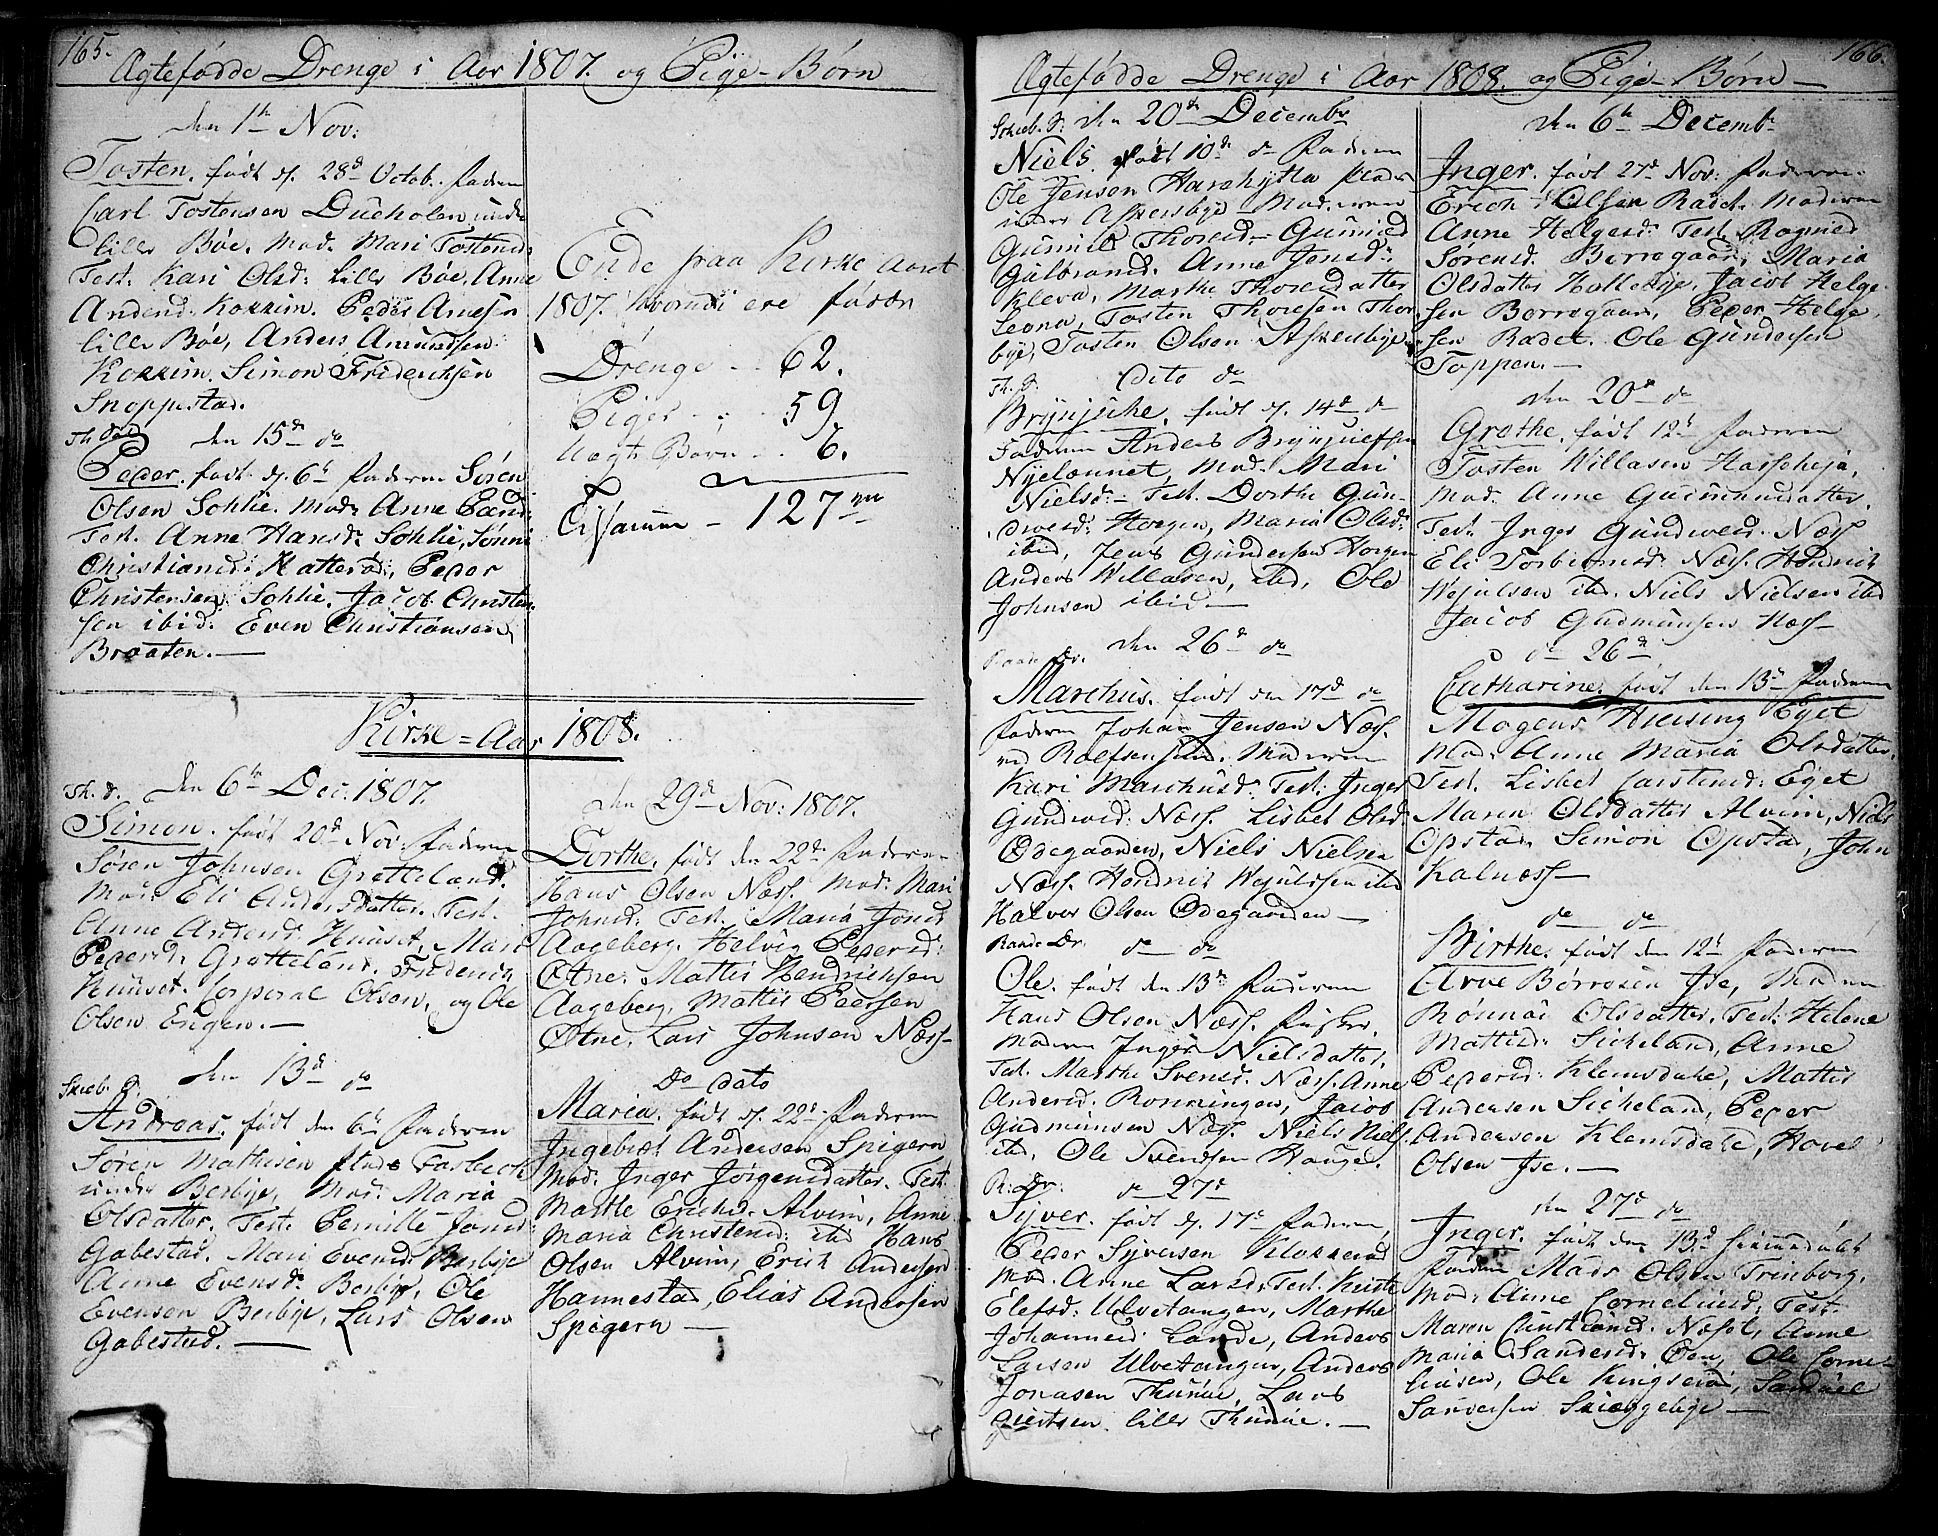 165.
Agtefødde Drenge i Aar 1807. og Pige-Børn
den 1te Nov:
Tosten. født d. 28d Octob. Faderen
Carl Tostensen Dueholen under
lille Bøe. Mod. Mari Tostensd
Test. Kari Olsd: lille Bøe, Anne
Andersd. Kokkim. Peder Arnesen
lille Bøe, Anders Amundsen
Kokkim. Simon Friderichsen
Snoppestad.
den 15de do
Peder. født d. 6te Faderen Søren
Olsen Sohlie. Mod: Anne
Test. Anne Hansd: Sohlie,
Christiansd: Katterød, Peder
Christensen Sohlie, Jacob Christen-
sen ibid: Even Christiansen
Braaten.—
Ende fraa Kirke Aaret
1807. hvorudi ere fødde
Drenge - - 62.
Piger - - 59
Uægte Børn - - 6.
Tilsamen - 127
Kirke=Aar 1808.
Th. d. Den 6te Dec. 1807.
Simon. født 20d Nov: Faderen
Søren Johnsen Grotteland.
Mod: Eli Andersdatter. Test.
Anne Andersd. Huuset, Mari
Pedersd: Grotteland. Friderich
Huuset. Corporal Olsen, og Ole
Olsen Engen.—
den 13d do
Skieb. d.
Andreas, født den 6te Faderen
Søren Mathisen
under Berbye, Mod: Maria
Olsdatter. Test. Pernille Jonsd:
Gabestad. Mari Evensd: Berbye
Anne Evensd. Berbye, Ole
Evensen Berbye, Lars Olsen
Gabestad.—
den 29d Nov: 1807.
Dorthe, født den 22d: Faderen
Hans Olsen Næss. Mod: Mari
Johnsd: Test. Maria Jonsd
Aageberg, Helvig Pedersd:
Øtne. Mattis Hendrichsen
Aageberg, Mattis Pedersen
Øtne, Lars Johnsen Næss-
Do dato
Maria. født d. 22d. Faderen
Ingebret Andersen Spigern
Mod: Inger Jørgensdatter. Test:
Marthe Erichsd. Alvim, Anne
Maria Christensd: ibid Hans
Olsen Alvim, Erich Andersen
Hannestad, Elias Andersen
Spigern —
166.
Agtefødde Drenge i Aar 1808. og Pige-Børn—
Skieb. d: den 20de Decembr
Niels. født 10de do Faderen
Ole Jensen Harehytta Plads
under Askersbye Moderen
Gunild Thoresd- Gunild
Gulbrand. Anne Jonsd:
Kleva, Marthe Thoresdatter
Leona, Tosten Thoresen Thor-
bye, Tosten Olsen Askersbye
Th. d. Dito do
Brynjulve. født d. 14de do
Faderen Anders Brynjuelsen
Nyelænnet, Mod: Mari
Nielsd:- Test. Dorthe Gun-
dersd: Horgen, Maria Olsd:
ibid, Jens Gundersen Horgen
Anders Willasen, ibd, Ole
Johnsen ibid-
den 26d do
Marchus. født den 17d do
Faderen Johan Jensen Næss.
ved Rolfsensund. Moderen
Kari Marchusd: Test: Inger
Gundersd: Næss. Lisbet Olsd
Ødegaarden, Niels Nielsen
Næss. Hondrit Wejulssen ibd
Halvor Olsen Ødegaarden—
Raade Dr. do do
Ole. født den 13de Faderen
Hans Olsen Næss. Fisker.
Moderen Inger Nielsdatter,
Test. Marthe Svensd. Næss. Anne
Andersd: Ronningen, Jacob
Gudmunsen Næss. Niels Niels.
ibd, Ole Svendsen Hauged.
R: Dr: do 27d
Syver. født d. 17d. Faderen
Peder Syversen Klokkerud
Mod. Anne Larsd: Test.
Elefsd: Ulvetangen, Marthe
Johannesd: Lande, Anders
Larsen Ulvetangen, Anders
Jonasen Thunøe, Lars
Giertsen lille Thunøe.—
den 6te Decemb-
Inger. født 27de Nov: Faderen
Erich Olsen Rødet. Moderen
Anne Helgesd: Test. Ragnild
Sørensd: Borregaard, Maria
Olsdatter Hollebye, Jacob Helge-
sen Borregaard, Peder Helge-
sen Rødet. Ole Gundersen
Toppen.—
den 20de do
Grethe, født 12te Faderen
Tosten Willasen Hasseheja,
Mod: Anne Gudmunsdatter
Test: Inger Gundersd. Næss
Eli Torbiørnsd: Næss. Hondrit
Wejulsen ibd. Niels Nielsen ibd
Jacob Gudmunsen Næss-
do 26d
Catharine. født den 13de Faderen
Mogens Hiersing Eget
Mod: Anne Maria Olsdatter.
Test. Lisbet Carstensd: Eget
Maren Olsdatter Alvim, Niels
Opstad, Simon Opstad, John
Kalnæss-
do do
Birthe. født den 12te Faderen
Arve Børresen Ise, Moderen
Rønnau Olsdatter. Test: Helene
Mattisd: Sikeland, Anne
Pedersd: Klemsdahl, Mattis
Andersen Sikeland, Peder
Andersen Klemsdahl, Hovel
Olsen Ise.—
den 27d do
Inger. født den 13d hiemmedøbt
Faderen Mads Olsen Trinborg,
Mod: Anne Corneliusd: Test.
Maren Christiansd: Næsøl, Anne
Maria Sandersd: Øen, Ole Corne-
liusen, Ole Kingserød, Samuel
Sandersen Skieggebye—